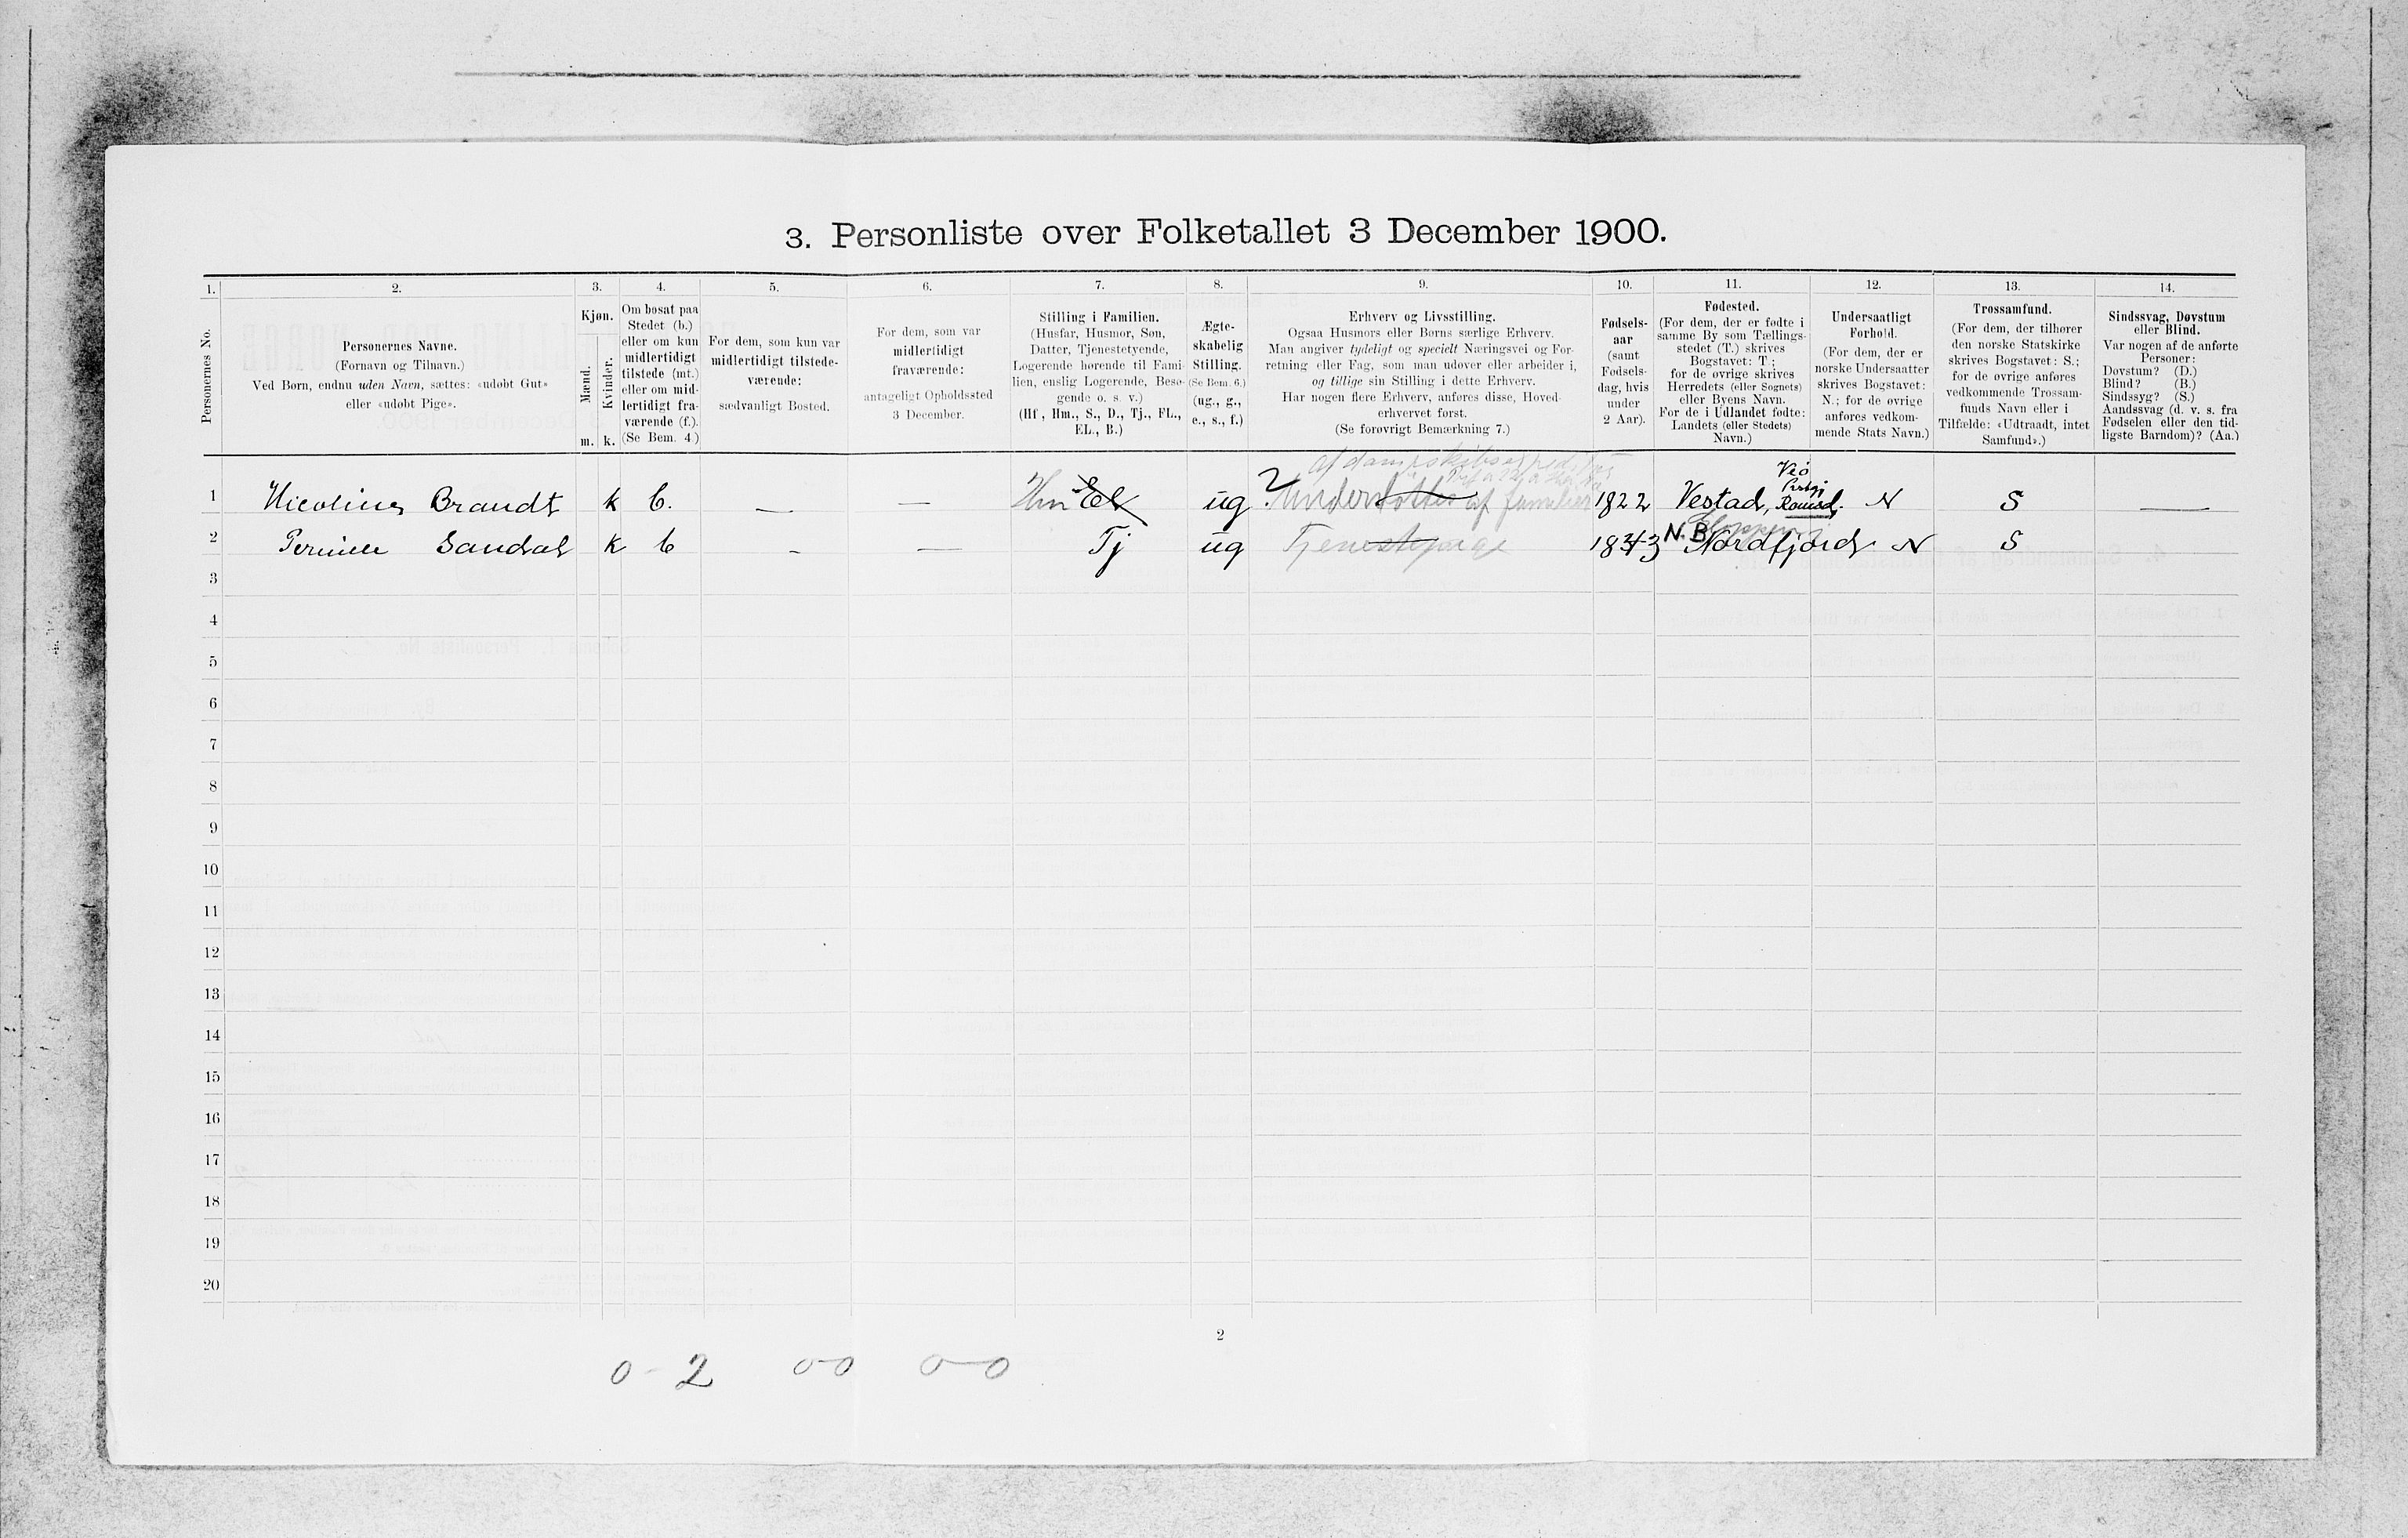 3. Personliste over Folketallet 3 December 1900.
1. 2. 3. 4. 5. 6. 7. 8. 9. 10. 11. 12. 13. 14.
Personernes No.
Personernes Navne.
(Fornavn og Tilnavn.)
Ved Børn, endnu uden Navn, sættes: «udøbt Gut»
eller «udøbt Pige».
Kjøn.
Mænd.
Kvinder.
m. k.
Om bosat paa
Stedet (b.)
eller om kun
midlertidigt
tilstede (mt.)
eller om mid-
lertidigt fra-
værende (f.).
(Se Bem. 4.)
For dem, som kun var
midlertidigt tilstede-
værende:
sædvanligt Bosted.
For dem, som var
midlertidigt
fraværende:
antageligt Opholdssted
3 December.
Stilling i Familien.
(Husfar, Husmor, Søn,
Datter, Tjenestetyende,
Logerende hørende til Fami-
lien, enslig Logerende, Besø-
gende o. s. v.)
(Hf., Hm., S., D., Tj., FL.,
EL., B.)
Ægte-
skabelig
Stilling.
(Se Bem. 6.)
(ug., g.,
e., s., f.)
Erhverv og Livsstilling.
Ogsaa Husmors eller Børns særlige Erhverv.
Man angiver tydeligt og specielt Næringsvei og For-
retning eller Fag, som man udøver eller arbeider i,
og tillige sin Stilling i dette Erhverv.
Har nogen flere Erhverv, anføres disse, Hoved-
erhvervet først.
(Se forøvrigt Bemærkning 7.)
Fødsels-
aar
(samt
Fødsels-
dag, hvis
under
2 Aar).
Fødested.
(For dem, der er fødte i
samme By som Tællings-
stedet (T.) skrives
Bogstavet: T;
for de øvrige skrives
Herredets (eller Sognets)
eller Byens Navn.
For de i Udlandet fødte:
Landets (eller Stedets)
Navn.)
Undersaatligt
Forhold.
(For dem, der er
norske Undersaatter
skrives Bogstavet:
N.; for de øvrige
anføres vedkom-
mende Stats Navn.)
Trossamfund.
(For dem, der tilhører
den norske Statskirke
skrives Bogstavet: S.;
for de øvrige anføres
vedkommende Trossam-
funds Navn eller i
Tilfælde: «Udtraadt, intet
Samfund».)
Sindssvag, Døvstum
eller Blind.
Var nogen af de anførte
Personer:
Døvstum? (D.)
Blind? (B.)
Sindssyg? (S.)
Aandssvag (d. v. s. fra
Fødselen eller den tid-
ligste Barndom)? (Aa.)
1 Nicoline Brandt k b. — — Hm El ug ? Understøttes af familien 1822 Vestad, Veø Romsd. N S —
2 Pernille Sandal k b - — Tj ug Tjenestepige 1843 N.B. Gloppen Nordfjord N S
3
4
5
6
7
8
9
10
11
12
13
14
15
16
17
18
19
20
2
0-2 0-0 0-0